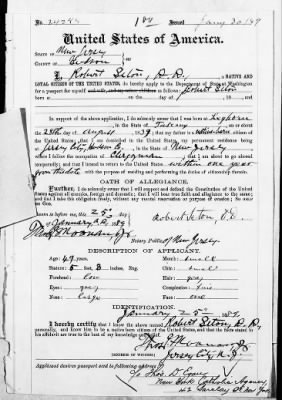 No. 24293 Issued Jany 30/89
United States of America.
STATE OF New Jersey
COUNTY OF Hudson
I, Robert Seton, D.D., A NATIVE AND
LOYAL CITIZEN OF THE UNITED STATES, hereby apply to the Department of State at Washington
for a passport for myself and my wife, and my minor children as follows: Robert Seton
born at
In support of the above application, I do solemnly swear that I was born at Leghorn
in the State of Tuscany on the
28th day of August 1839, that I am a
citizen of the United States; that I am domiciled in the United States, my permanent residence being
at Jersey City, in the State of New Jersey,
where I follow the occupation of Clergyman; that I am about to go abroad
temporarily; and that I intend to return to the United States within one year
from this date with the purpose of residing and performing the duties of citizenship therein.
OATH OF ALLEGIANCE.
Further, I do solemnly swear that I will support and defend the Constitution of the United
States against all enemies, foreign and domestic; that I will bear true faith and allegiance to the same; and
that I take this obligation freely, without any mental reservation or purpose of evasion: SO HELP ME GOD.
Sworn to before me, this 25th day
of January A.D. 1889
Robert Seton, D.D.
Notary Public of New Jersey
DESCRIPTION OF APPLICANT.
Age: 49 years
Mouth: small
Stature: 5 feet 3 inches, Eng.
Chin: small
Forehead: low
Hair: gray
Eyes: gray
Complexion: fair
Nose: large
Face: oval
IDENTIFICATION.
January 25th 1889
I hereby certify that I know the above named Robert Seton, D.D.
Jersey City N.J.
Applicant desires passport sent to
New York Catholic Agency
42 Barclay St New York